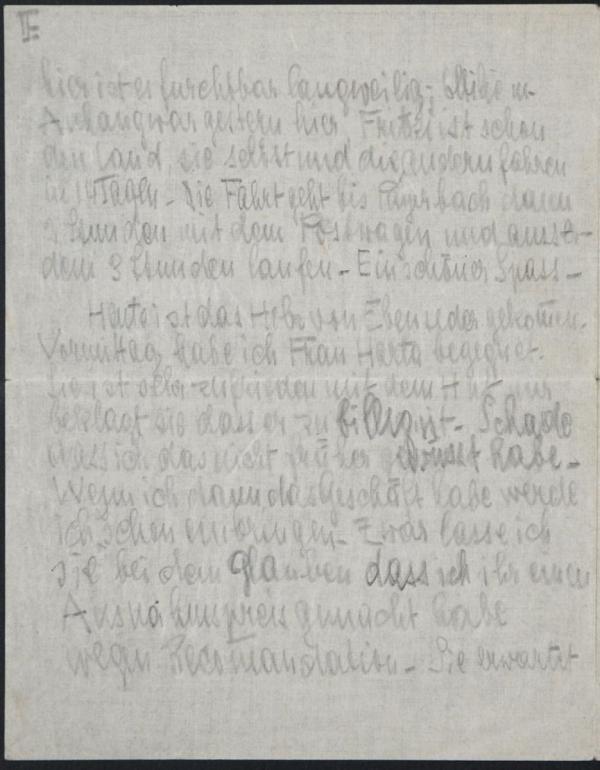 II
hier ist es furchtbar langweilig;
Anhang war gestern hier, Fritzi ist schon
den Land, sie selbst und die andern fahren
in 14 Tagen – Die Fahrt geht bis Payerbach dann
3 Stunden mit dem Postwagen und ausser-
dem 3 Stunden laufen – Ein schöner Spass –
Heute ist das Holz von Ebenseder gekommen.
Vormittag habe ich Frau Harta begegnet.
Sie ist sehr zufrieden mit dem Hut nur
beklagt sie dass er zu billig ist – Schade
dass ich das nicht früher gewusst habe –
Wenn ich dann das Geschäft habe werde
ich schon einbringen – Zwar lasse ich
sie bei dem glauben dass ich ihr einen
Ausnahmspreis gemacht habe
wegen Recomandation – Sie erwartet